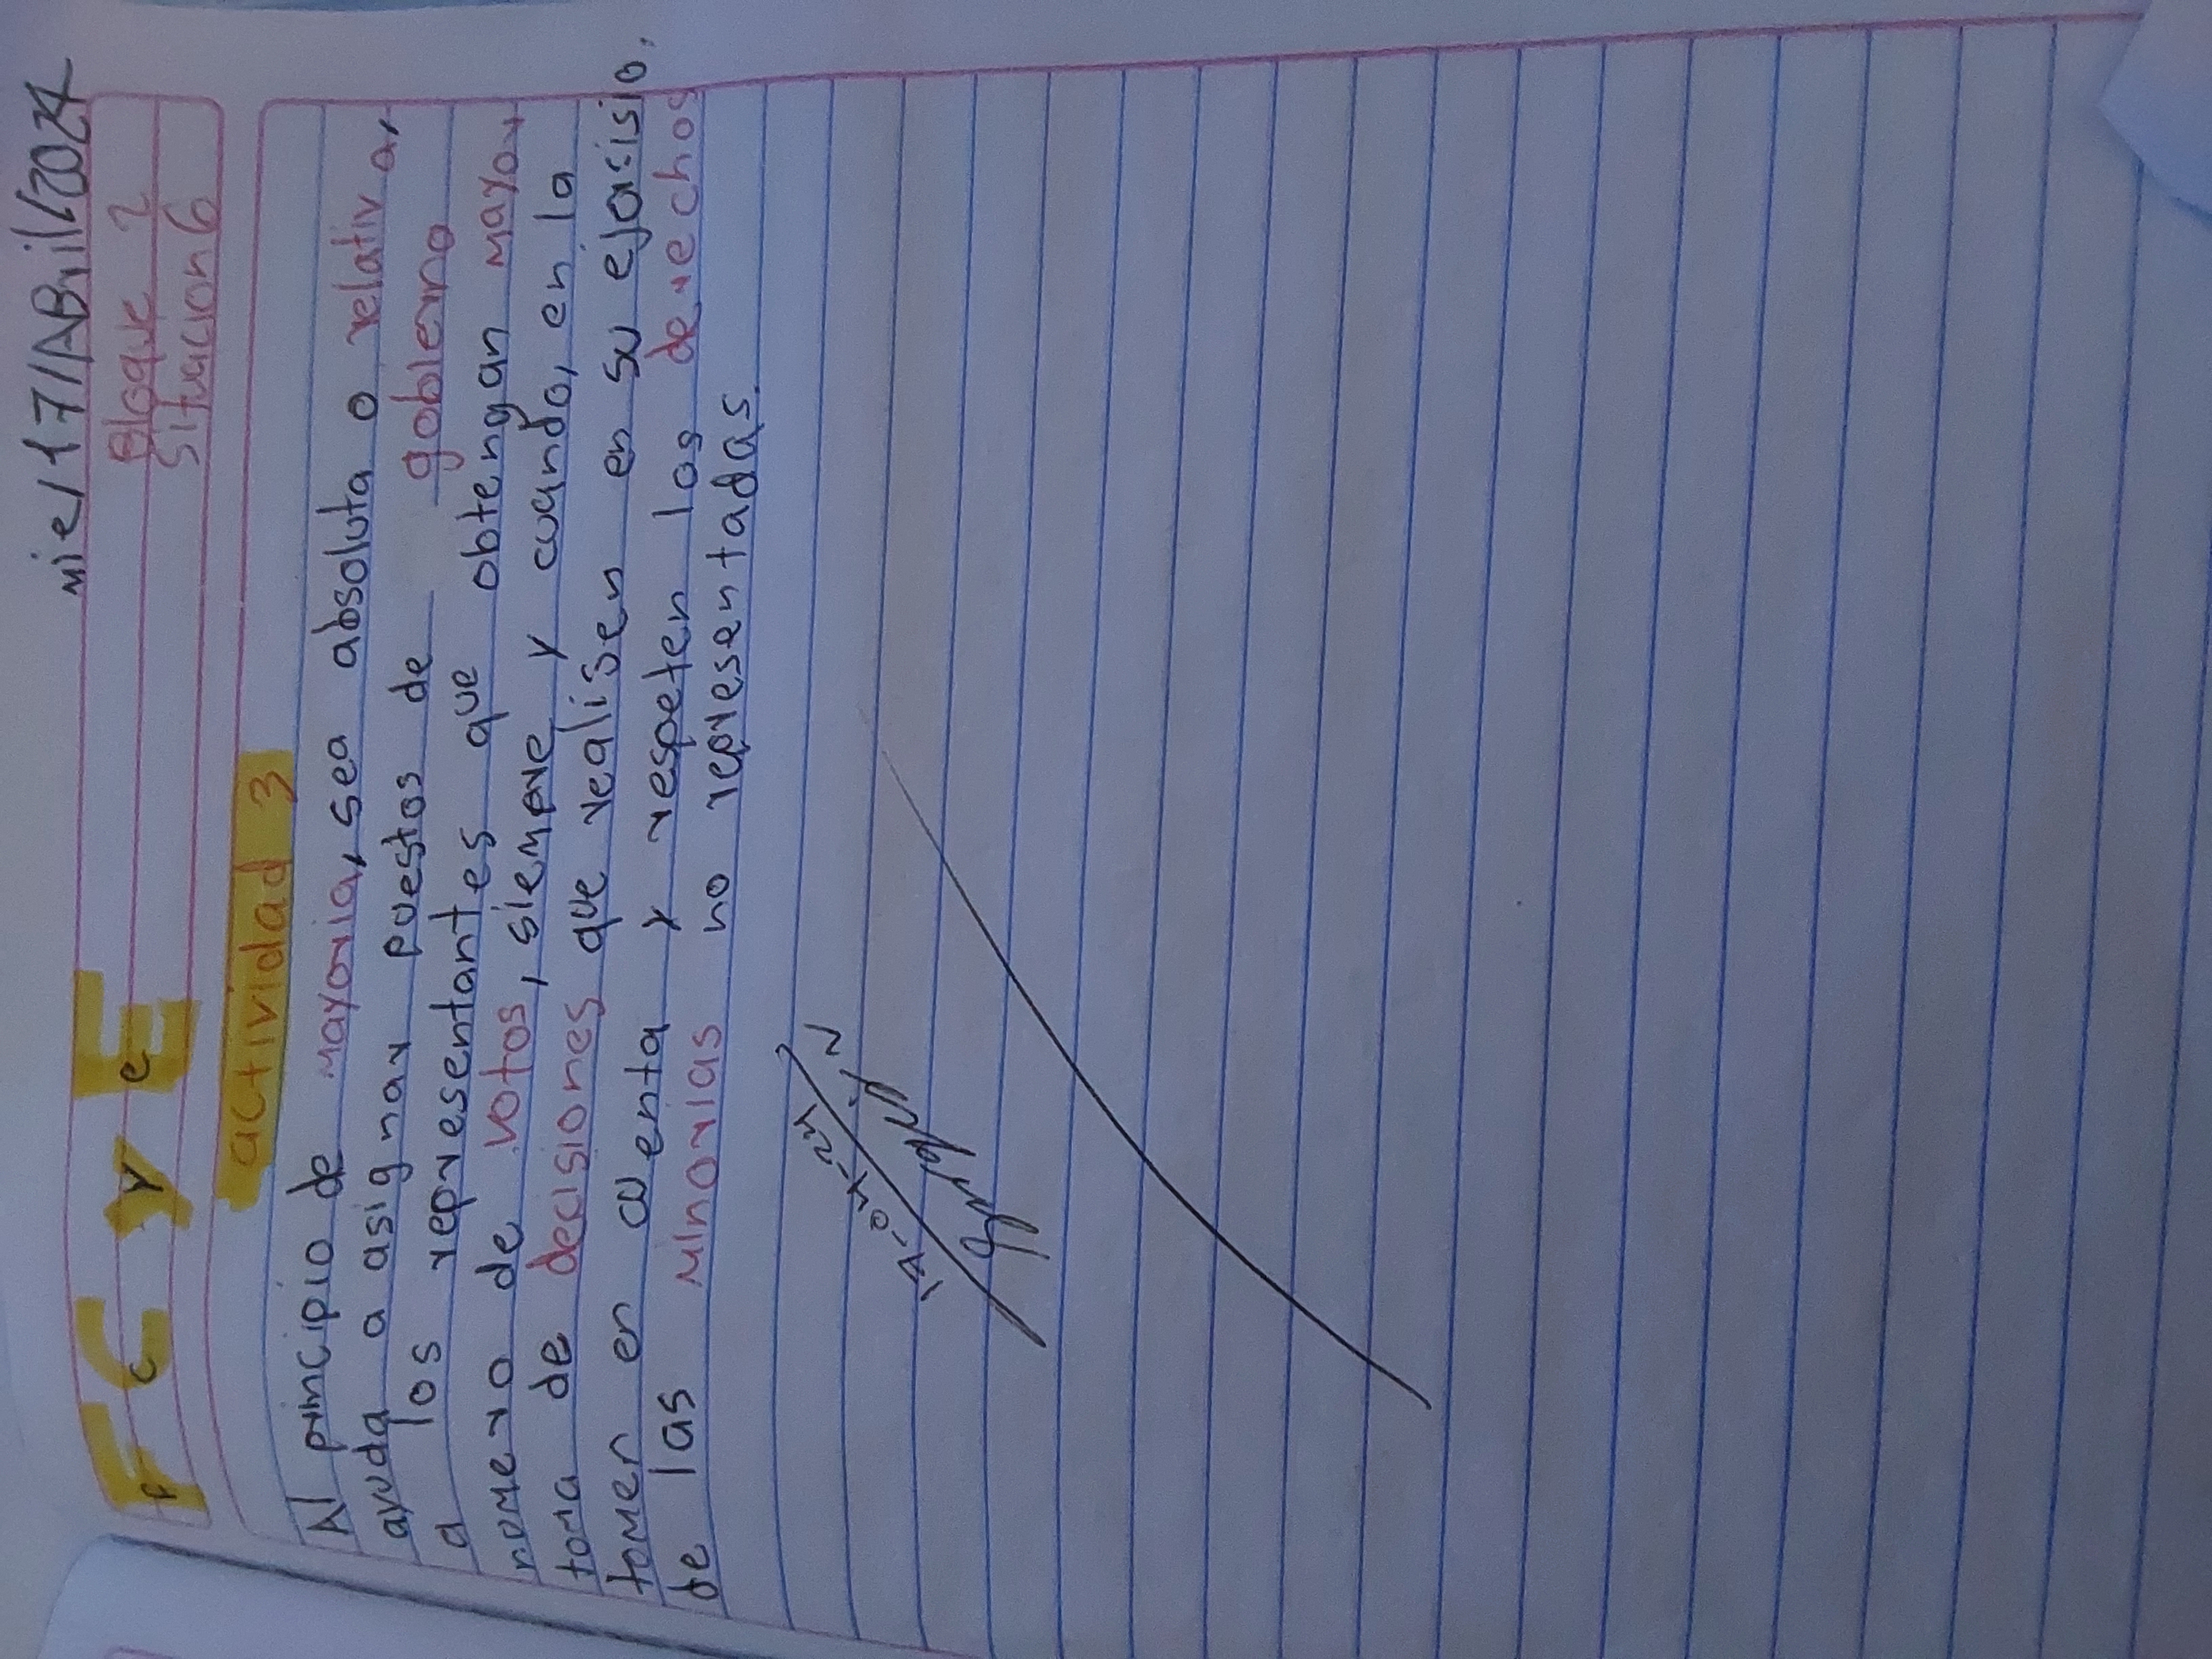 mie/17/ABril/2024
F C y E
F C y e
Bloque 2
Situacion 6
actividad 3
Al principio de mayoria, sea absoluta o relativa,
ayuda a asignar puestos de gobierno
a los representantes que obtengan mayor
nomero de votos, siempre y cuando, en la
toma de decisiones que realisen en su ejorsisio,
tomen en cuenta y respeten los derechos
de las minorias no representadas.